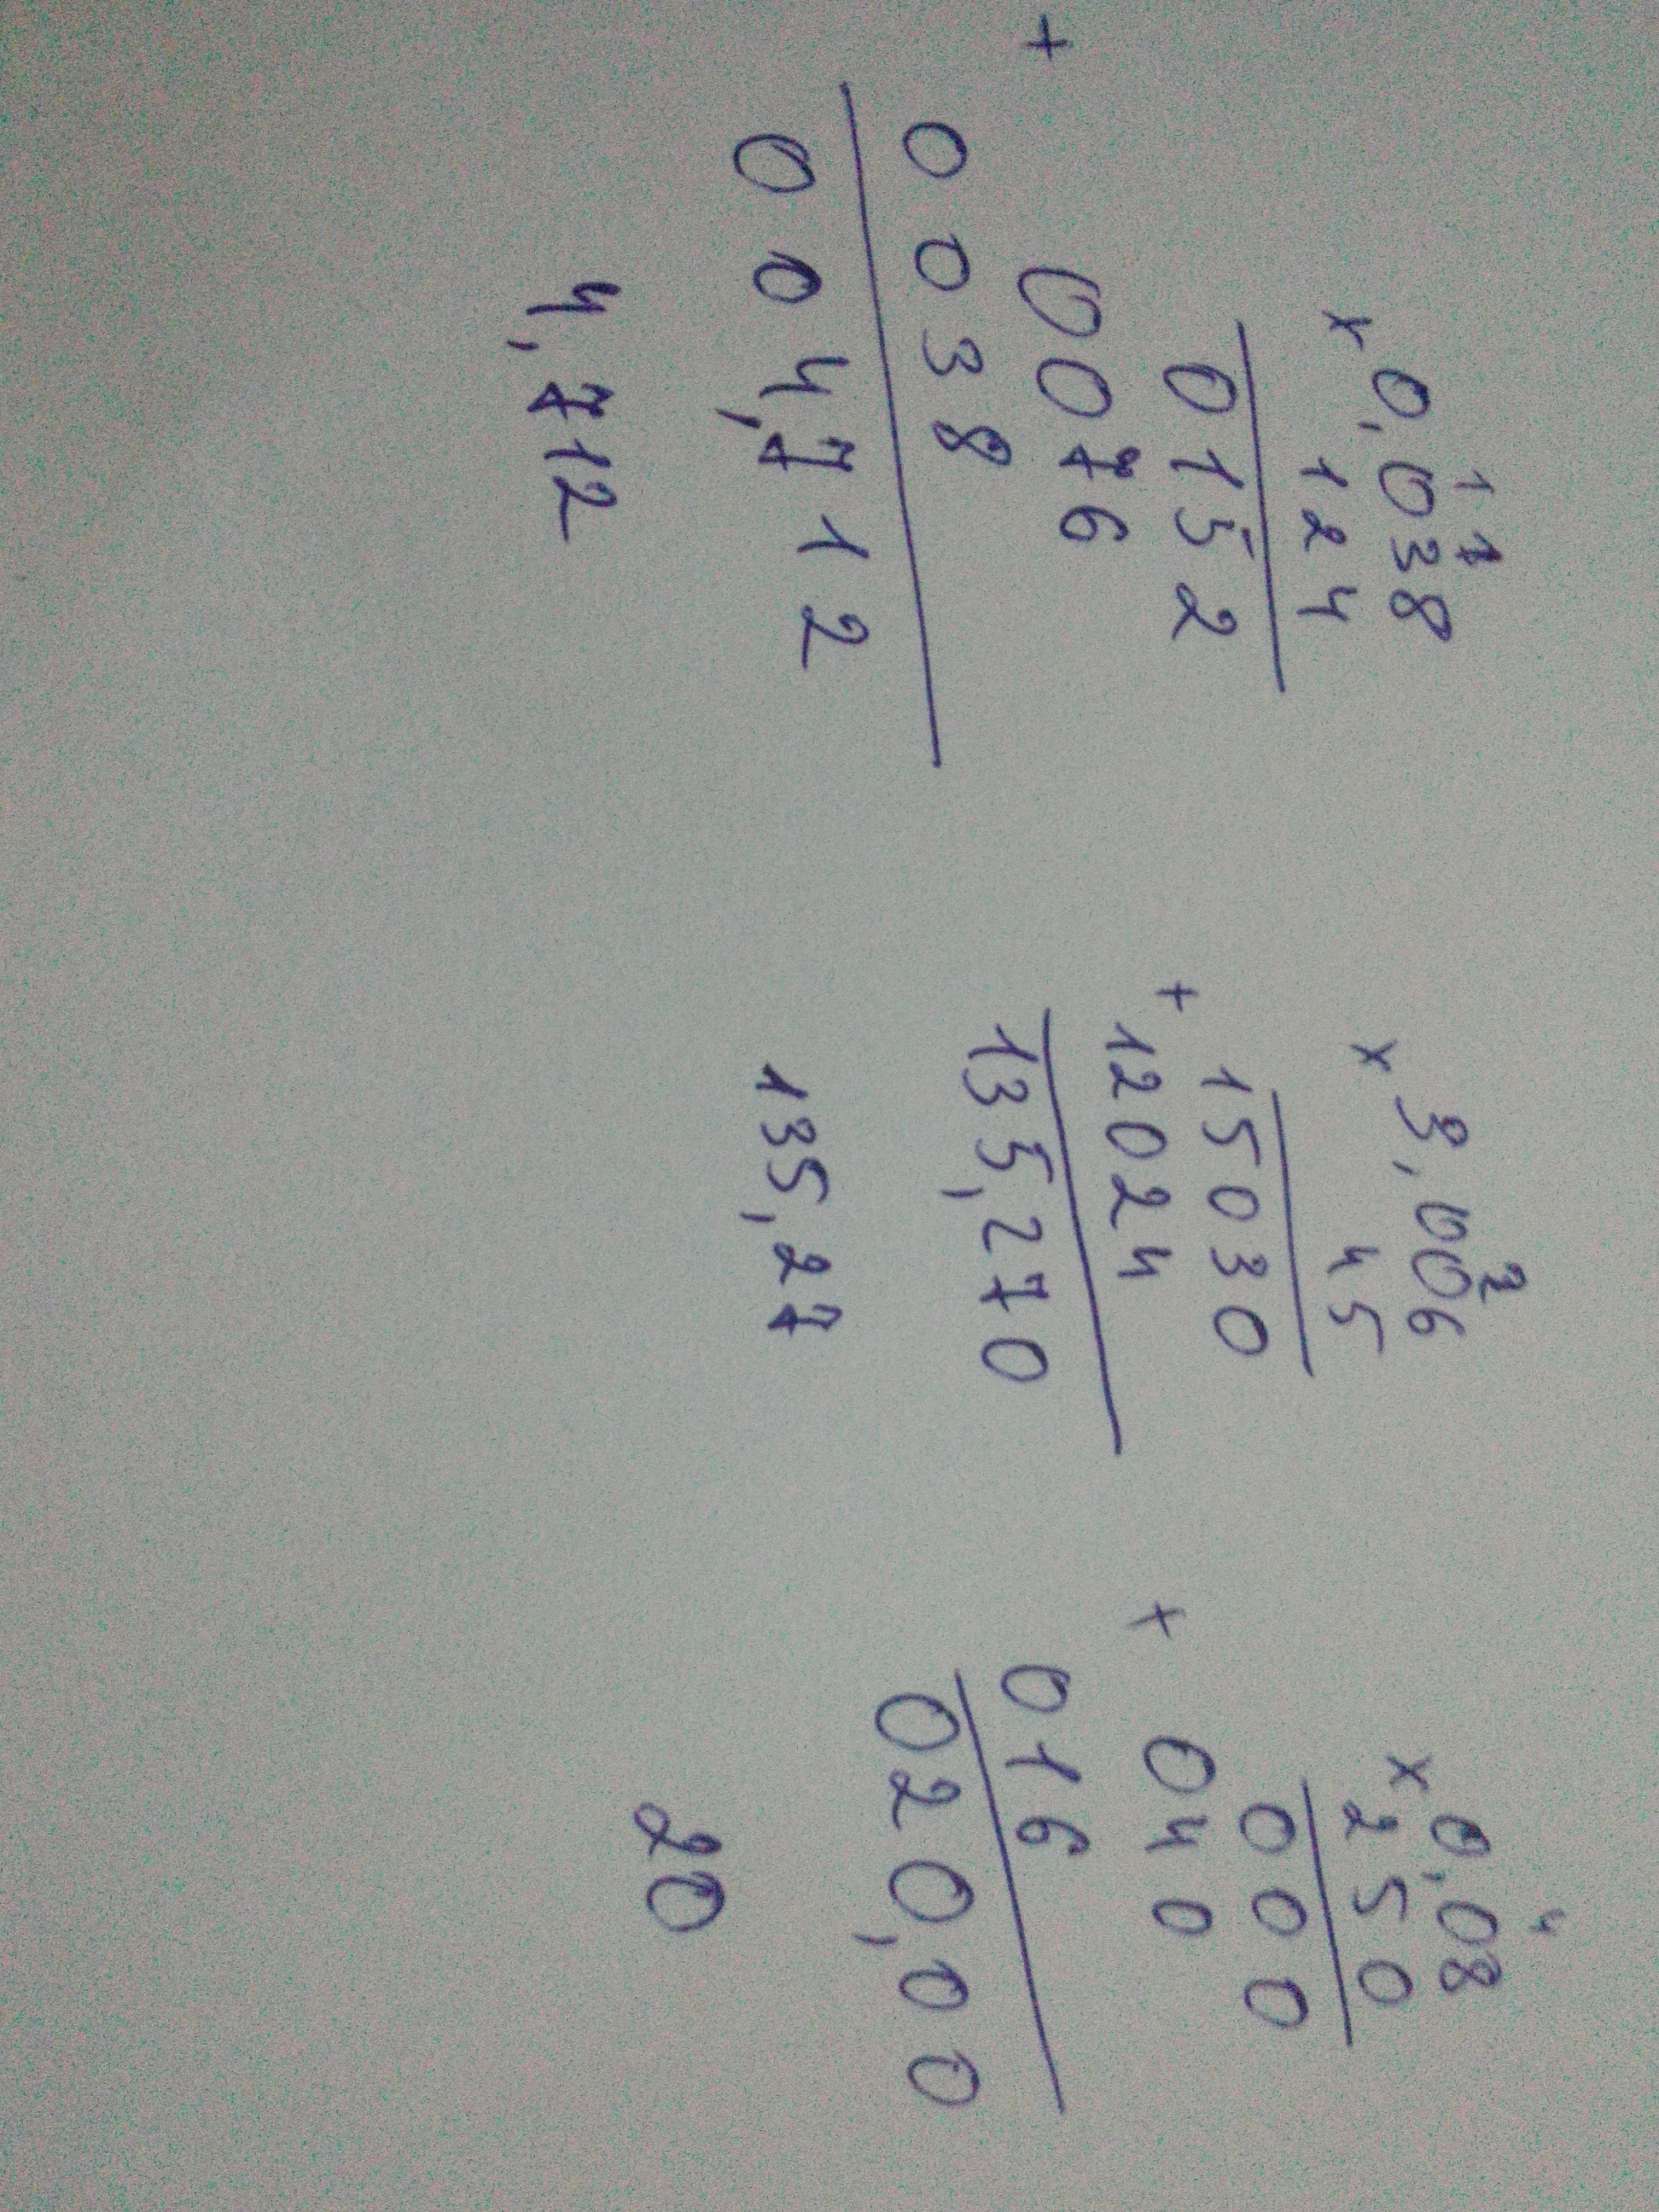 1 1
0,038
x 124
0152
0076
+
0038
004,712
4,712
2
3,006
x 45
15030
+ 12024
135,270
135,27
4
0,08
x 250
000
+ 040
016
020,00
20